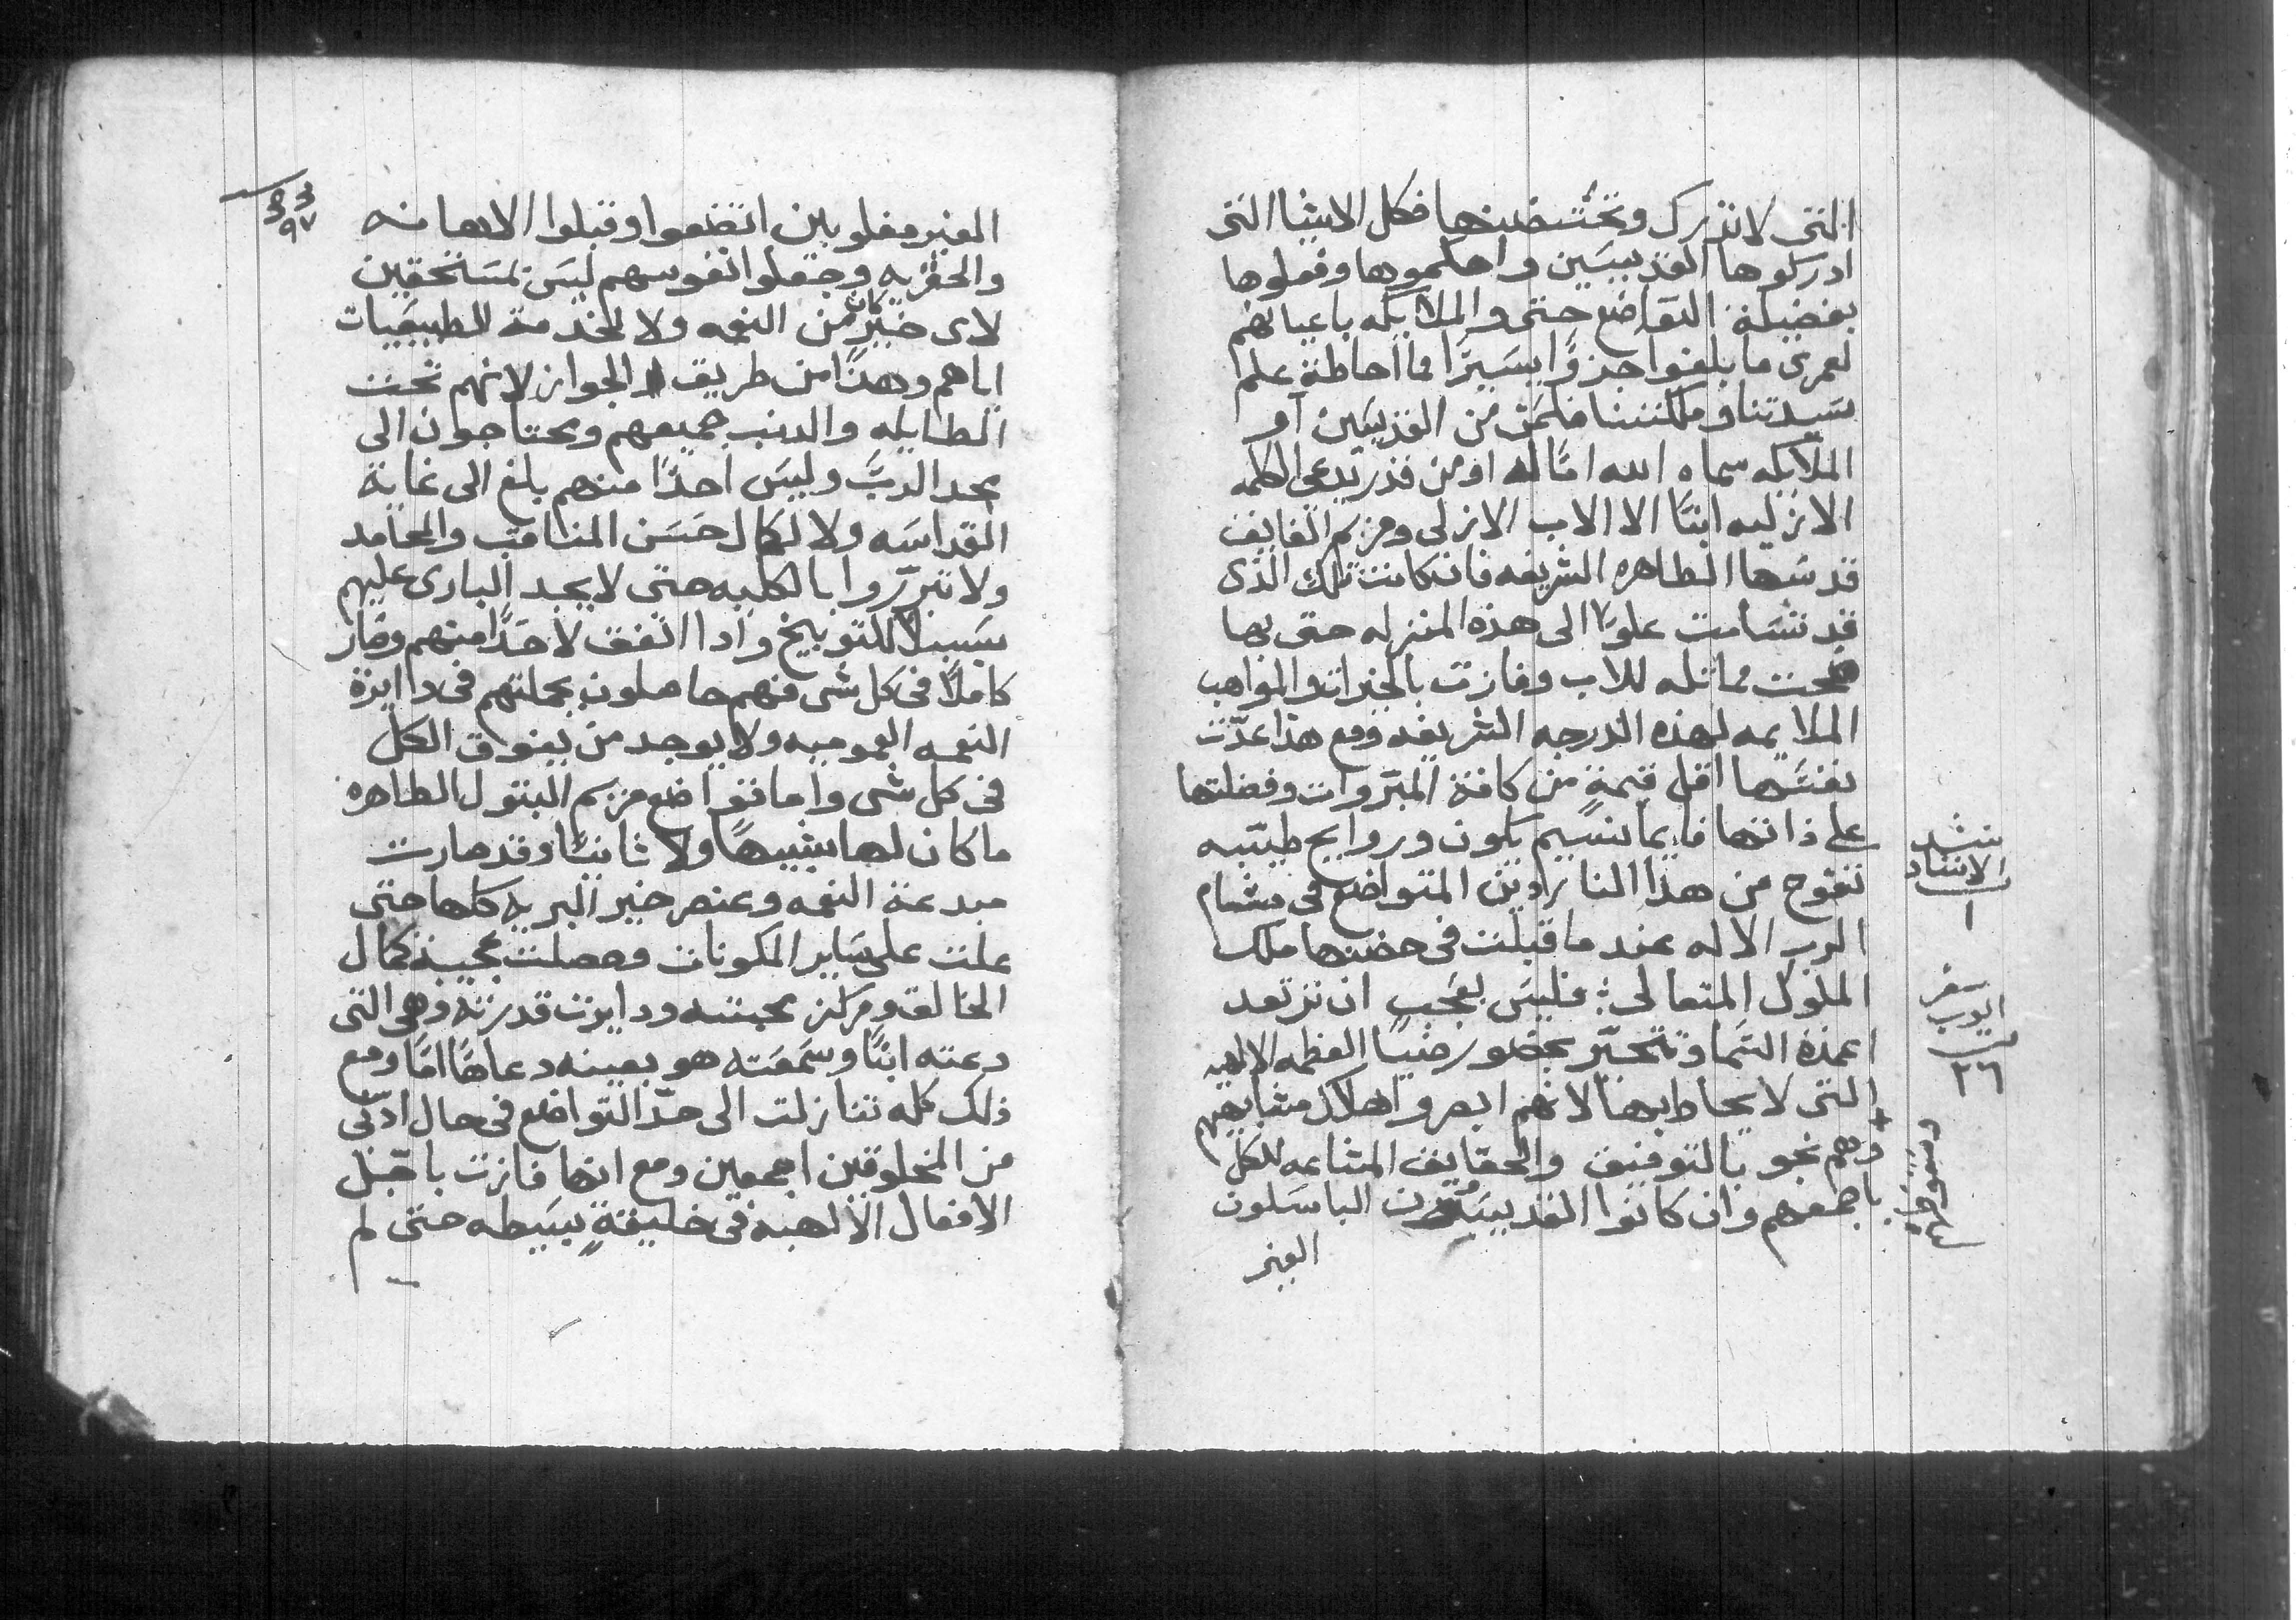 التى لا تدرك وتحتضنها فكل الاشيا التى
ادركوها القديسَين واحكموها وفعلوها
بفضيلة التواضع حتى والملايكه باعيانهم
لعمرى ما بلغوا جزوًا يسَيرًا مما احاطة علم
سَيدتنا وملكتنا فلمَن من القديسَين او
الملايكه سماه الله امًا له او من قدر يدعى الكلمه
الازليه ابنًا الا الاب الازلى ومريم الفايق
قدسَها الطاهره الشريفه فان كانت تلك الذى
قد تسَامت علوًا الى هذه المنزله حتى بها
صحت مماثله للاب وفازت بالخيرات والمواهب
الملايمه لهذه الدرجه الشريفه ومع هذا عدّت
نفسَها اقل قيمةٍ من كافة المبروات وفضلتها
على ذاتها فايما نسَيم يكون وروايح طيبه
تفوح من هذا الناردين المتواضع فى مشام
الرب الاله عندما قبلت فى حضنها ملك
الملوك المتعالى؛ فليسَ بعَجب ان ترتعد
اعمدة السَما وتتحيّر بحضور ضيا العظمه الالهيه
التى لا يحاط بها لانهم ابصروا هلاك مشابهيهم
وهم نجو بالتوفيق والحقايق المشاعه للكل
باجمعهم وان كانوا القديسَون الباسَلون
الغير
نشد
الانشاد
١
سفر
ايوب
٢٦
الغير مغلوبين اتضعوا وقبلوا الاهانه
والحقريه وجعلوا نفوسهم ليسَ بمسَتحقين
لاى خير كان من النعمه ولا لخدمة الطبيعيات
اياهم وهذا من طريق الجواز لانهم تحت
الطايله والدنب جميعهم ويحتاجون الى
مجد الربّ وليسَ احدًا منهم بلغ الى غاية
القداسَه ولا لكمال حسَن المناقب والمحامد
ولا تبرّروا بالكليه حتى لا يجد البارى عليهم
سَبيلاً للتوبيخ واذا اتفق لاحدًا منهم وصار
كاملاً فى كل شى منهم حاصلون بجملتهم فى داايرة
النعمه العموميه ولا يوجد من يفوق الكل
فى كل شى واما تواضع مريم البتول الطاهره
ما كان لها شبيهًا ولا ثانيًا وقد صارت
مبدعة النعمه وعنصر خير البريه كلها حتى
علت على سَاير المكونات وحصلت عجيبة كمال
الخالق ومركز محبته ودايرت قدرته وهى التى
دعته ابنًا وسَمعَته هو بعينه دعاها امًا ومع
ذلك كله تنازلت الى حدّ التواضع فى حال ادنى
من المخلوقين اجمعين ومع انها فازت باجل
الافعال الالهيه فى خليقةٍ بسَيطه حتى لم
٩٧